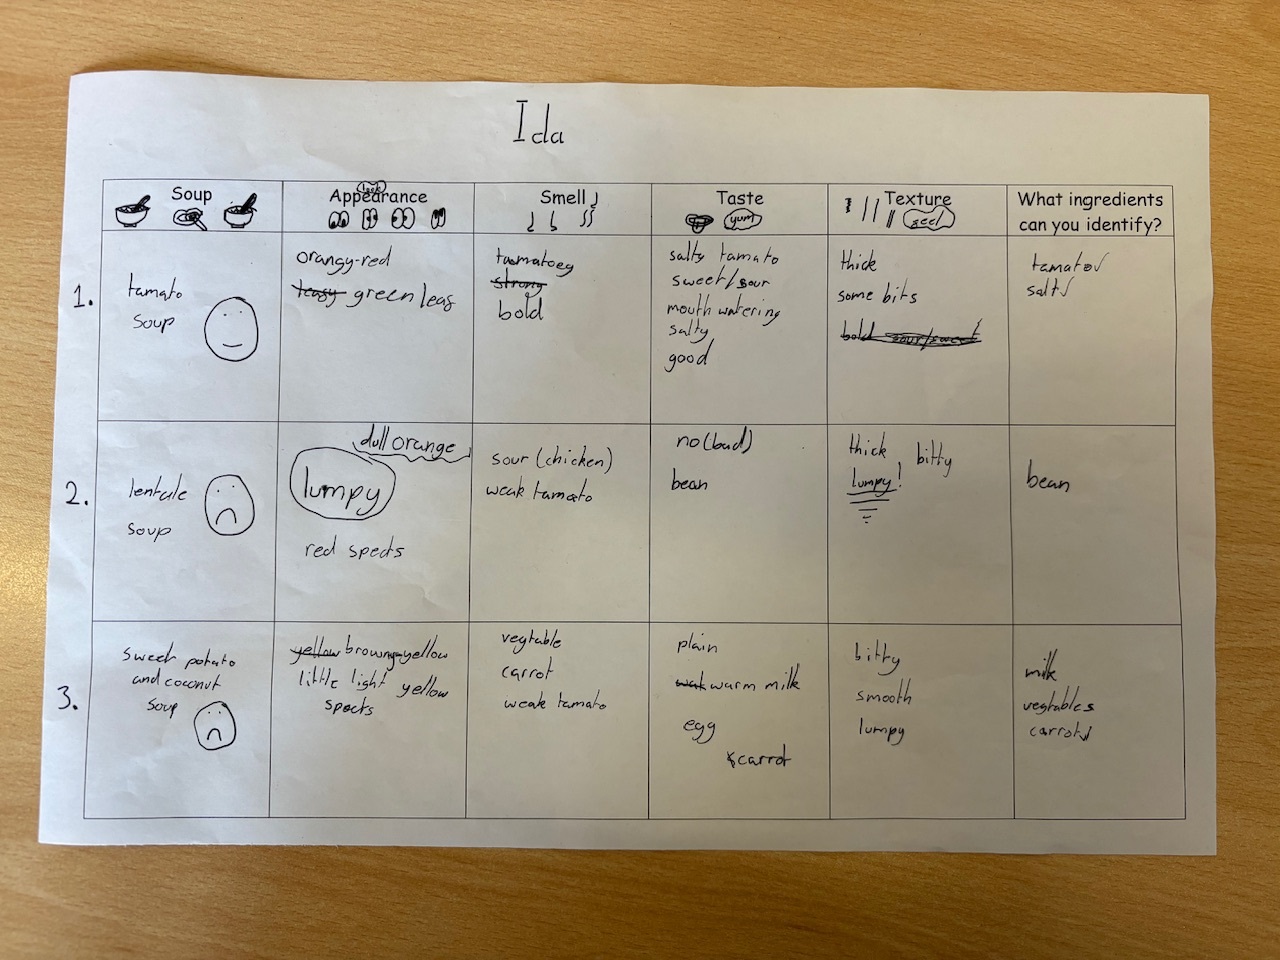 Ida
Soup
Appearance
look
Smell
Taste
yum
Texture
What ingredients
can you identify?
1.
tamato
soup
orangy-red
green leaf
tamatoey
strong
bold
salty tamato
sweet/sour
mouth watering
salty
good
thick
some bits
bold sour/sweet
tamato
salt
2.
lentale
soup
dull orange
lumpy
red spects
sour (chicken)
weak tamato
no(bad)
bean
thick bitty
lumpy!
bean
3.
sweet potato
and coconut
soup
yellow browny-yellow
little light yellow
spects
vegtable
carrot
weak tamato
plain
warm milk
egg
carrot
bitty
smooth
lumpy
milk
vegtables
carrot